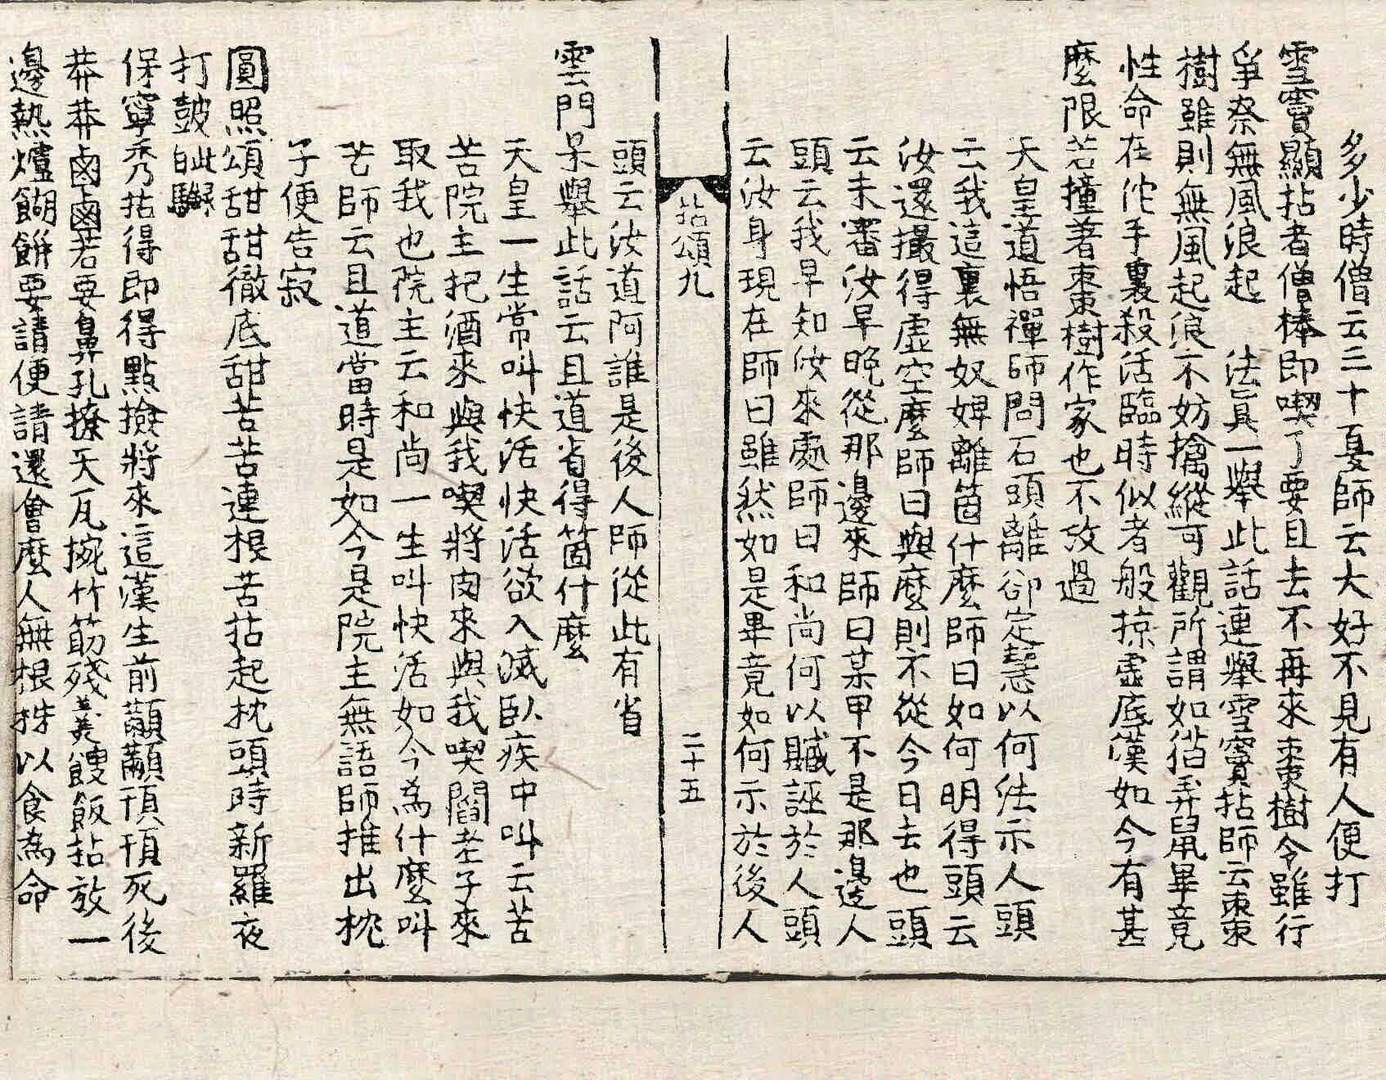 多少時僧云三十夏師云大好不見有人便打
雪竇顯拈者僧棒即喫了要且去不再來棗樹令雖行
爭奈無風浪起　法真一舉此話連舉雪竇拈師云棗
樹雖則無風起浪不妨擒縱可觀所謂如猫弄鼠畢竟
性命在佗手裏殺活臨時似者般掠虛底漢如今有甚
麼限若撞著棗樹作家也不放過
天皇道悟禪師問石頭離卻定慧以何法示人頭
云我這裏無奴婢離箇什麼師曰如何明得頭云
汝還撮得虛空麼師曰與麼則不從今日去也頭
云未審汝早晚從那邊來師曰某甲不是那邊人
頭云我早知汝來處師曰和尚何以贓誣於人頭
云汝身現在師曰雖然如是畢竟如何示於後人
拈頌九
二十五
頭云汝道阿誰是後人師從此有省
雲門杲舉此話云且道省得箇什麼
天皇一生常叫快活快活欲入滅臥疾中叫云苦
苦院主把酒來與我喫將肉來與我喫閻老子來
取我也院主云和尚一生叫快活如今為什麼叫
苦師云且道當時是如今是院主無語師推出枕
子便告寂
圓照頌甜甜徹底甜苦苦連根苦拈起枕頭時新羅夜
打皷
保寧秀拈得即得點撿將來這漢生前顢顢頇頇死後
莽莽鹵鹵若要鼻孔撩天瓦椀竹筯殘羹餿飯拈放一
邊熱爐餬餅要請便請還會麼人無根株以食為命